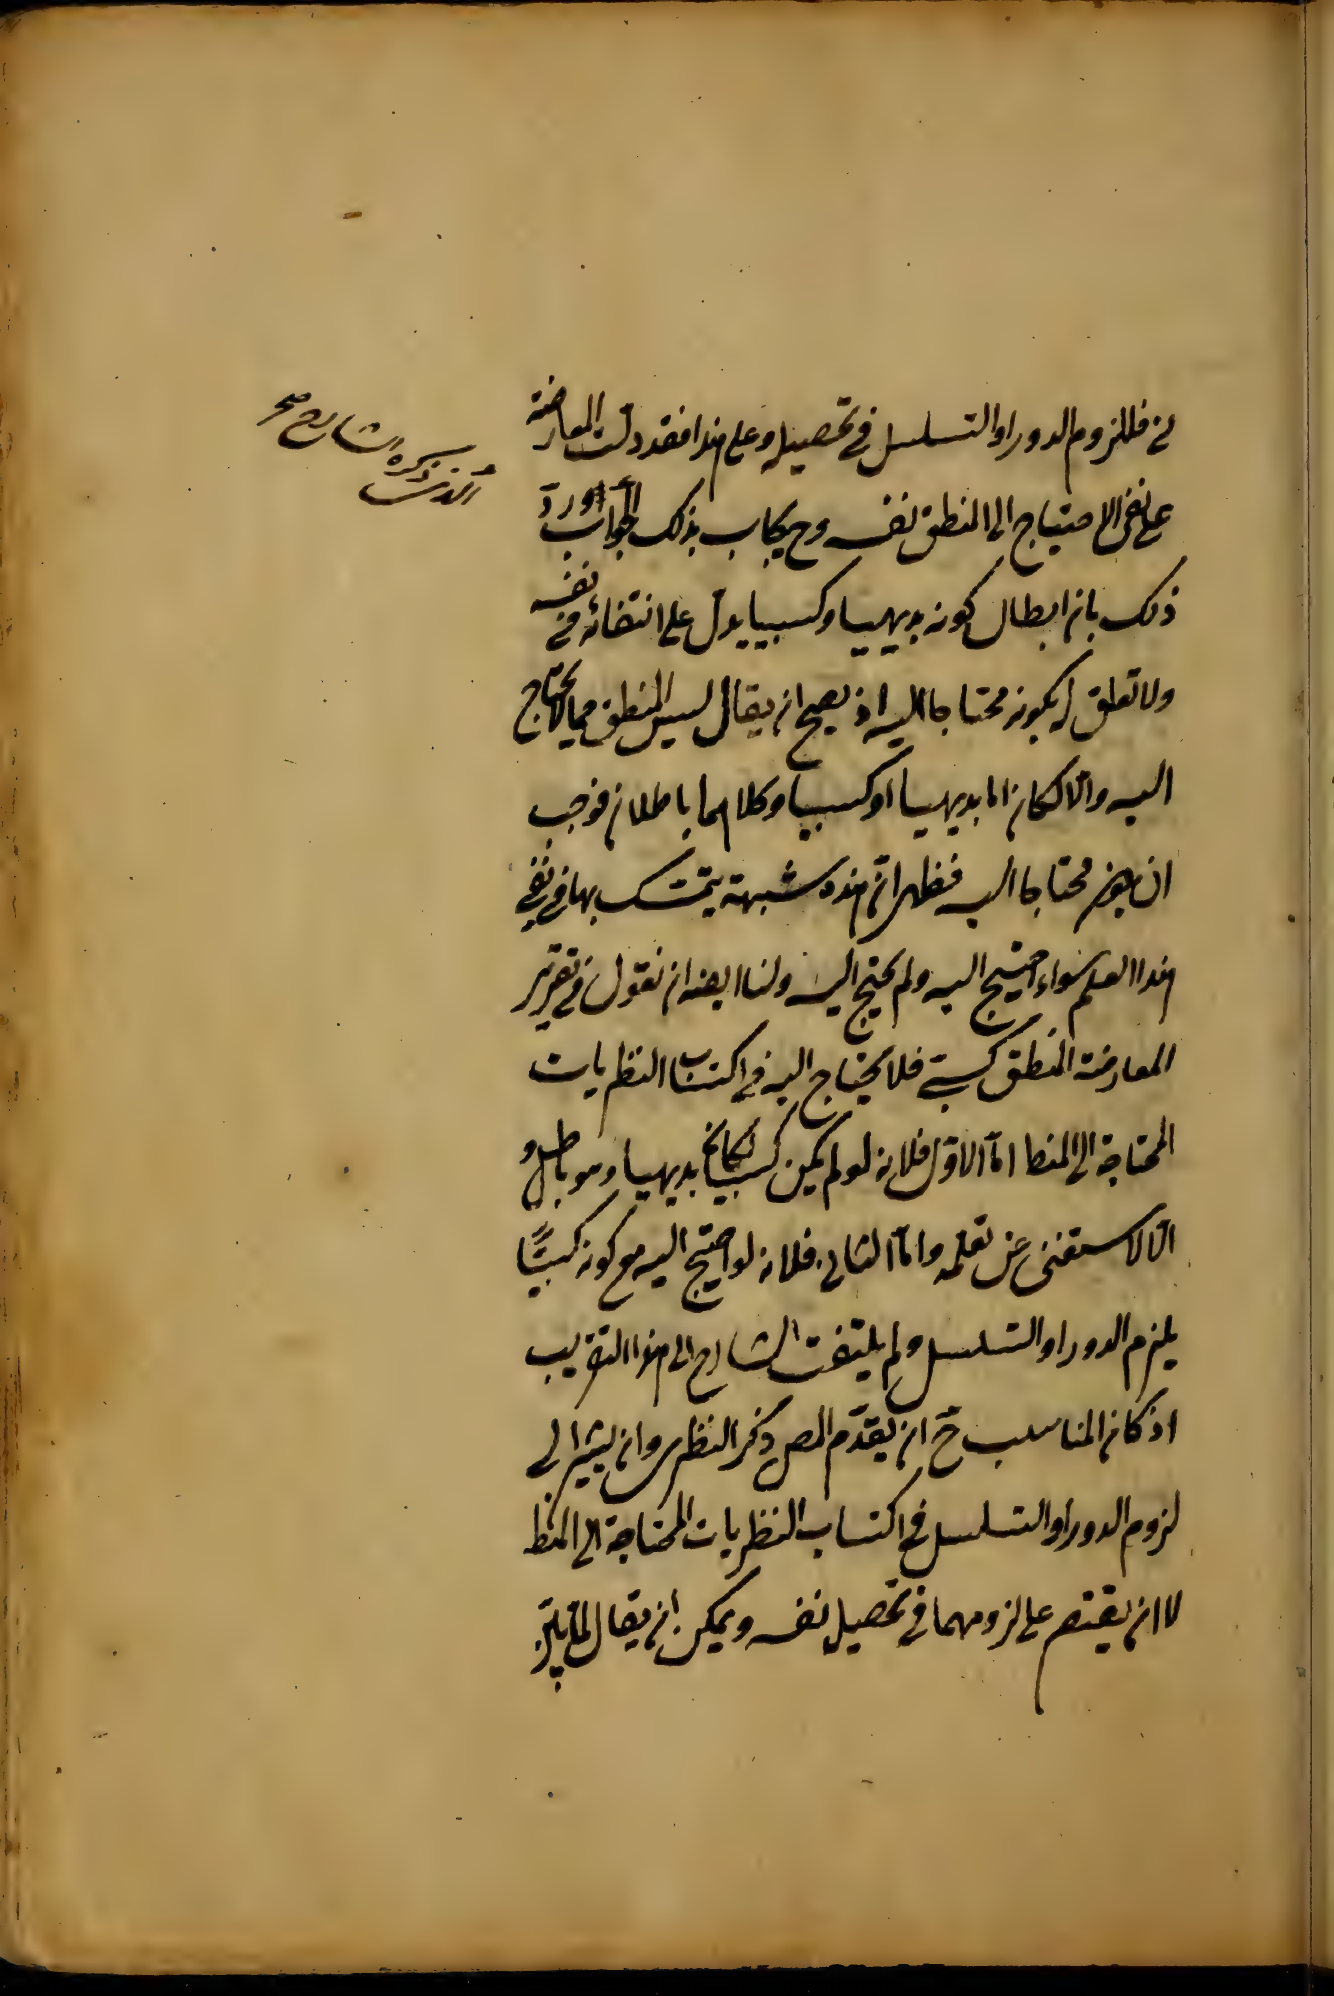 نى فللزوم الدور او التسلسل فى تحصيله وعلى هذا فقد دلّت المعارضة
على نفى الاحتياج الى المنطق نفسه وح يجاب بذلك الجواب اورد
الذى ذكره الشارح صح
ذلك بان ابطال كونه بديهيا وكسبيا يدل على انتفائه فى نفسه
ولا تعلق له بكونه محتاجا اليه اذ يصح ان يقال ليس المنطق مما لا يحتاج
اليه والّا لكان اما بديهيا او كسبيا وكلاهما باطلان فوجب
ان يكون محتاجا اليه فظهر انّ هذه شبهة يتمسّك بها فى نفى
هذا العلم سواء احتيج اليه ولم يحتج اليه ولنا ايضا ان نقول فى تقرير
المعارضة المنطق كسبىّ فلا يحتاج اليه فى اكتساب النظريات
المحتاجة الى المنط امّا الاوّل فلانه لو لم يكن كسبيا لكان بديهيا وهو باطل و
الّا لاستغنى عن تعلّمه وامّا الثانى فلانه لو احتيج اليه مع كونه كسبيًّا
يلزم الدور او التسلسل ولم يلتفت الشارح الى هذا التقريب
اذ كان المناسب ح ان يقدّم المص ذكر النظرى وان يشير الى
لزوم الدور او التسلسل فى اكتساب النظريات المحتاجة الى المنط
لا ان يقتصر على لزومهما فى تحصيل نفسه ويمكن ان يقال لما